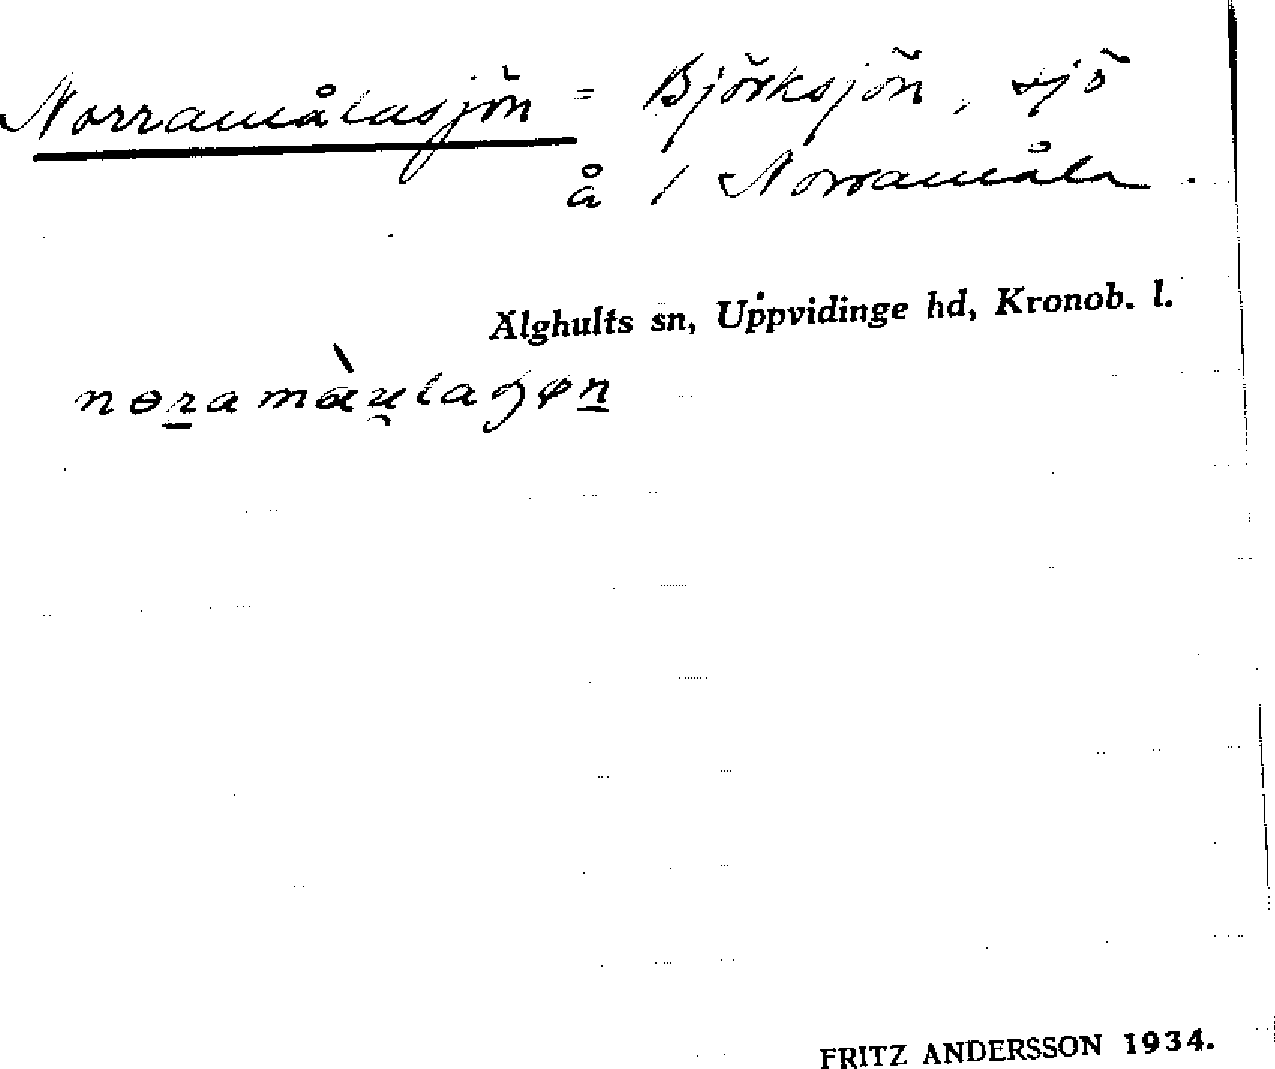 Norramålasjön = Björksjön, sjö
å 1 Norramåla.
Älghults sn, Uppvidinge hd, Kronob. l.
FRITZ ANDERSSON 1934.